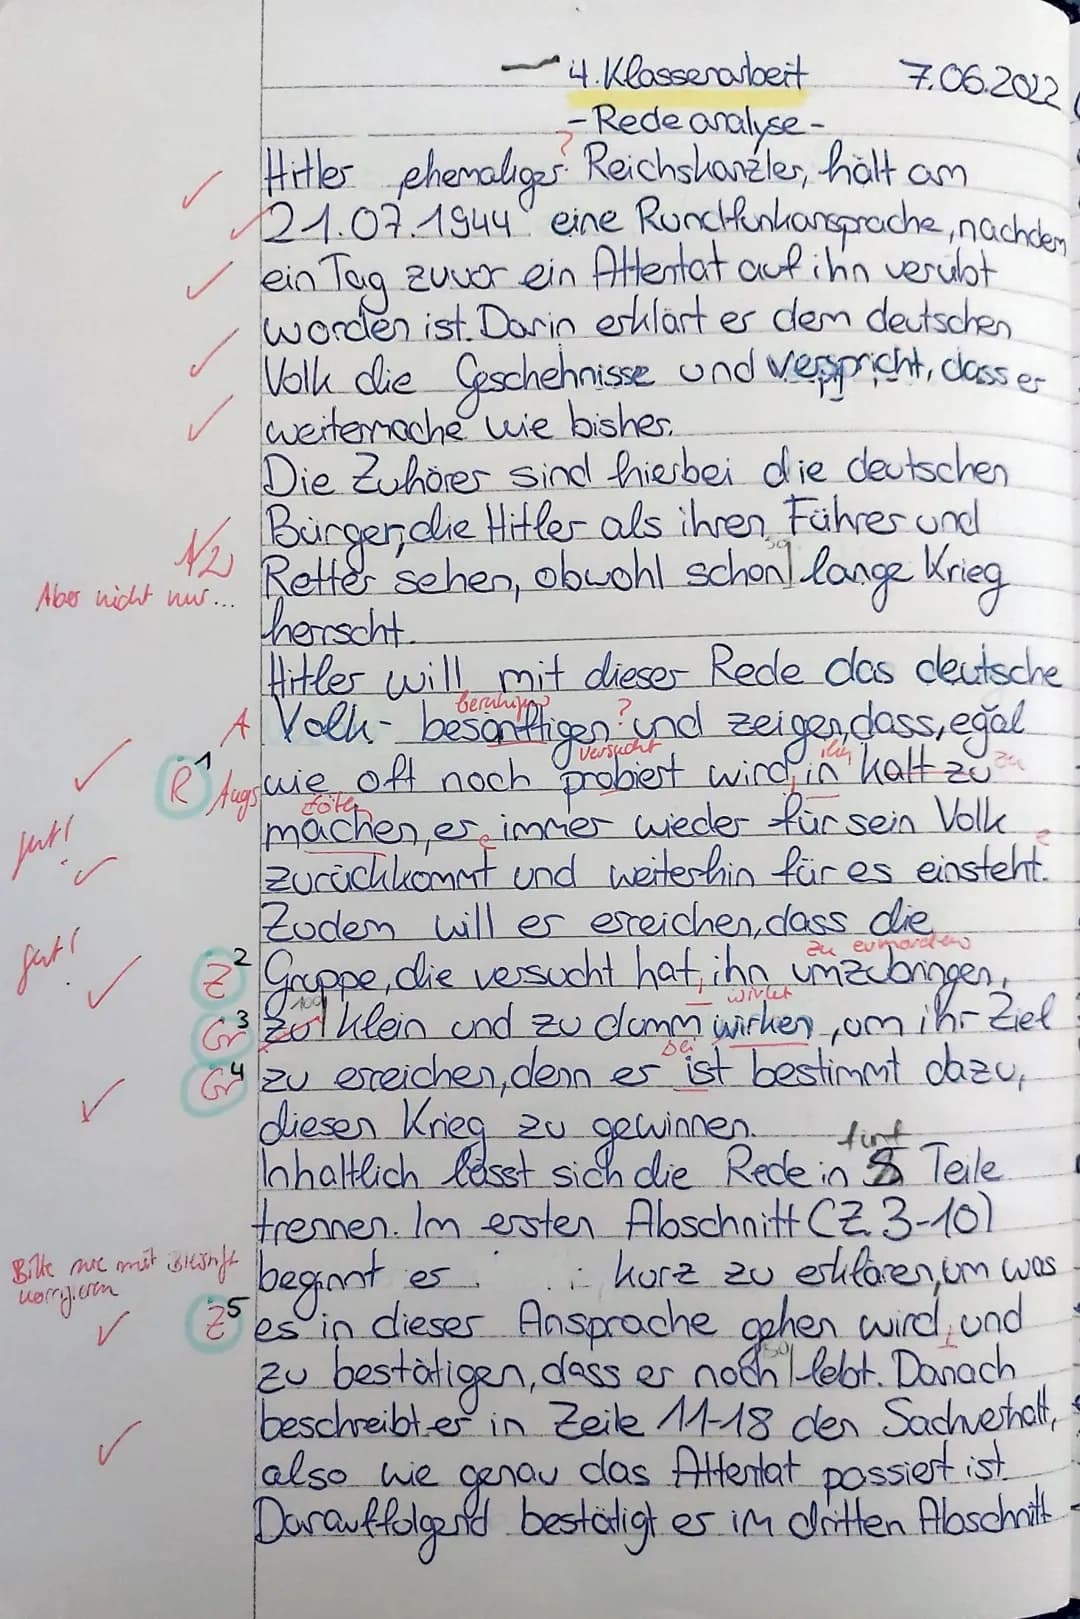 4. Klassenarbeit 7.06.2022
- Redeanalyse -
?
Hitler ehemaliger Reichskanzler, hält am
21.07.1944 eine Rundfunkansprache, nachdem
ein Tag zuvor ein Attentat auf ihn verübt
worden ist. Darin erklärt er dem deutschen
Volk die Geschehnisse und verspricht, dass er
weitermache wie bisher.
Die Zuhörer sind hierbei die deutschen
Bürger, die Hitler als ihren Führer und
Retter sehen, obwohl schon so lange Krieg
Aber nicht nur...
herrscht.
Hitler will mit dieser Rede das deutsche
beruhigen ?
A Volk besänftigen und zeigen, dass, egal
versucht ihn zu
R 1 Augs wie oft noch probiert wird, in kalt zu
töten
machen, er immer wieder für sein Volk
gut!
e e
zurückkommt und weiterhin für es einsteht.
Zudem will er erreichen, dass die
gut!
zu ermorden
Z 2 Gruppe, die versucht hat, ihn umzubringen,
wirkt
Gr 3 zu klein und zu dumm wirken, um ihr Ziel
sei
Gr 4 zu erreichen, denn er ist bestimmt dazu,
diesen Krieg zu gewinnen.
fünf
Inhaltlich lässt sich die Rede in Teile
trennen. Im ersten Abschnitt (Z. 3-10)
Bitte nie mit Bleistift korrigieren
beginnt er kurz zu erklären, um was
Z 5 es in dieser Ansprache gehen wird, und
so
zu bestätigen, dass er noch lebt. Danach
beschreibt er in Zeile 11-18 den Sachverhalt,
also wie genau das Attentat passiert ist.
Darauffolgend bestätigt er im dritten Abschnitt